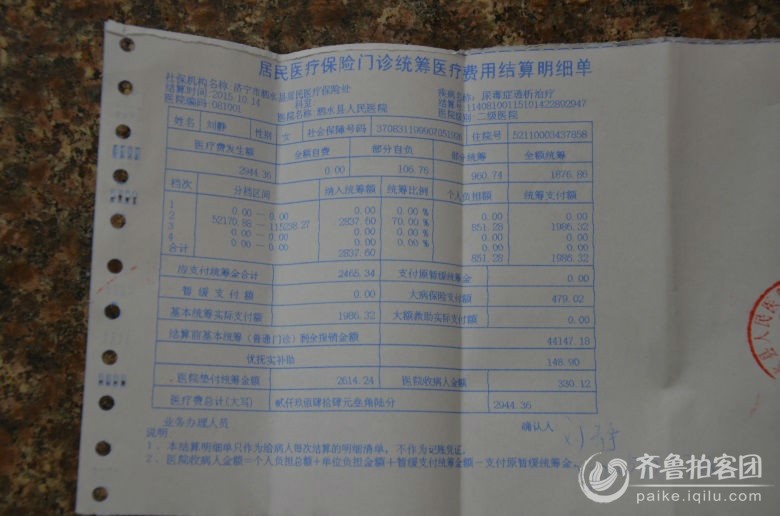 居民医疗保险门诊统筹医疗费用结算明细单
社保机构名称:济宁市泗水县居民医疗保险处
疾病名:尿毒症透析治疗
结算时间:2015.10.14 科室:
结算号:11408100115101422802947
医院编码:081001 医院名称:泗水县人民医院 医院级别:二级医院
姓名 刘静 性别 女 社会保障号码 住院号 52110003437858
医疗费发生额 全额自费 部分自负 部分统筹 全额统筹
2944.36 0.00 106.76 960.74 1876.86
档次 分档区间 纳入统筹额 统筹比例 个人负担额 统筹支付额
1 0.00 — 0.00 0.00 0.00 % 0.00 0.00
2 52170.88 — 115238.27 2837.60 70.00 % 851.28 1986.32
3 0.00 — 0.00 0.00 0.00 % 0.00 0.00
4 0.00 — 0.00 0.00 0.00 % 0.00 0.00
合计 2837.60 851.28 1986.32
应支付统筹金合计 2465.34 支付原暂缓统筹金 0.00
暂缓支付额 0.00 大病保险支付额 479.02
基本统筹实际支付额 1986.32 大额救助实际支付额 0.00
结算前基本统筹(普通门诊)剩余报销金额 44147.18
优抚实补助 148.90
医院垫付统筹金额 2614.24 医院收病人金额 330.12
医疗费总计(大写) 贰仟玖佰肆拾肆元叁角陆分 2944.36
业务办理人员 确认人 刘静
说明
1、本结算明细单只作为给病人每次结算的明细清单,不作为记账凭证。
2、医院收病人金额=个人负担总额+单位负担金额+暂缓支付统筹金额-支付原暂缓统筹金。
县人民医
齐鲁拍客团
paike.iqilu.com